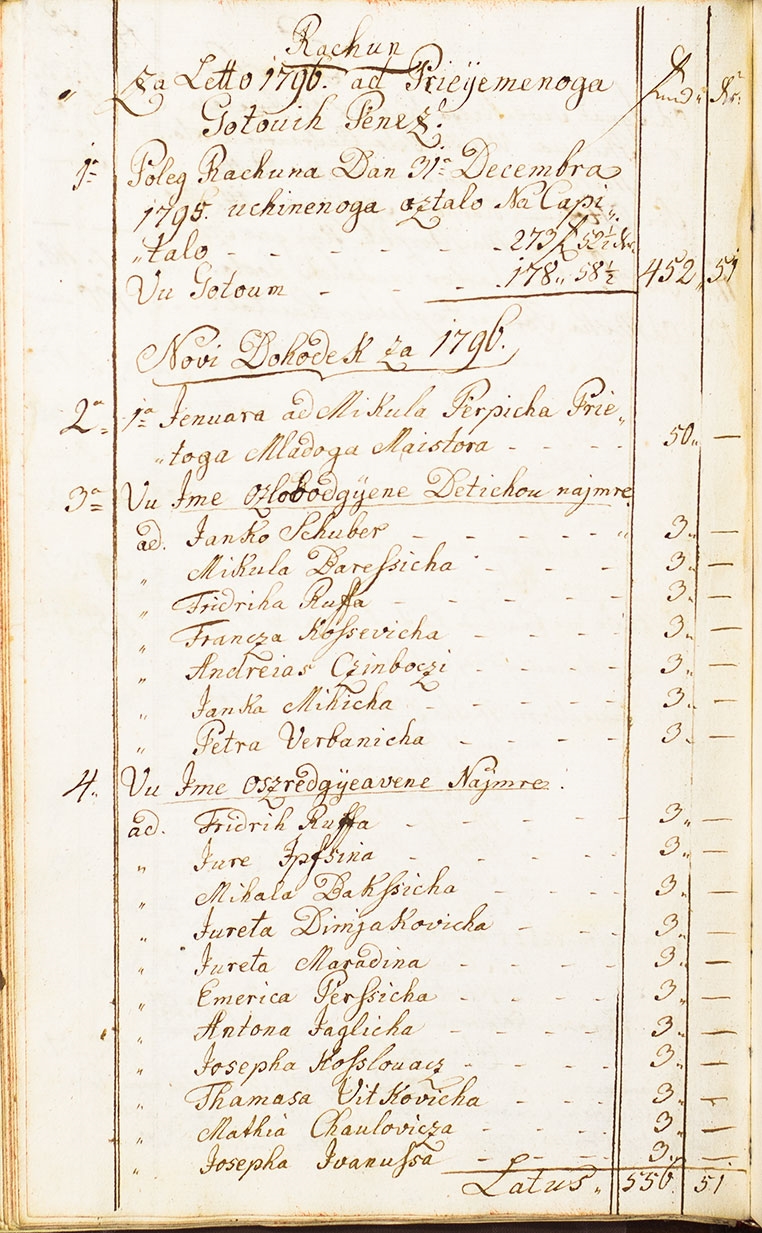 Rachun
Za Letto 1796. ad Prieyemenoga
Gotovih Penez.
1a Poleg Rachuna Dan 31a Decembra
1795. uchinenoga oztalo Na Capi„
„talo - - - - - 273 f 52½ Kr.
Vu Gotoum - - - - 178„ 58½ 452„ 51
Novi Dohodek za 1796.
2a 1a Jenuara ad Mikula Perpicha Prie„
„toga Mladoga Maistora - - - - 50„ —
3a Vu Jme ozlobodgyene Detichou najmre
ad. Janko Schuber - - - - - „ 3„ —
„ Mikula Baressicha - - - - 3„ —
„ Fridriha Ruffa - - - - - 3„ —
„ Francza Kossevicha - - - - 3„ —
„ Andreias Czinboczi - - - - 3„ —
„ Janka Mihicha - - - - - 3„ —
„ Petra Verbanicha - - - - 3„ —
4„ Vu Jme oszredgyeavene Najmre.
ad. Fridrih Ruffa - - - - - 3„ —
„ Jure Jpssina - - - - - 3„ —
„ Mihala Bakssicha - - - - 3„ —
„ Jureta Dimjakovicha - - - 3„ —
„ Jureta Maradina - - - - 3„ —
„ Emerica Perssicha - - - - 3„ —
„ Antona Jaglicha - - - - - 3„ —
„ Josepha Kosslouacz - - - - 3„ —
„ Thamasa Vitkovicha - - - 3„ —
„ Mathia Chaulovicza - - - - 3„ —
„ Josepha Ivanussa - - - - 3„ —
Latus„ 556 51